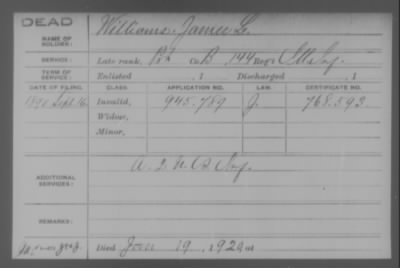 DEAD
NAME OF SOLDIER: Williams, James G.
SERVICE: Late rank, Pvt Co. B, 144 Reg't Ills Inf.
TERM OF SERVICE: Enlisted , 1 Discharged , 1
DATE OF FILING. CLASS. APPLICATION NO. LAW. CERTIFICATE NO.
1890 Sept 16 Invalid, 945.789 J. 768.593
Widow,
Minor,
ADDITIONAL SERVICES: Inf.
REMARKS:
Died 19, 1920 at